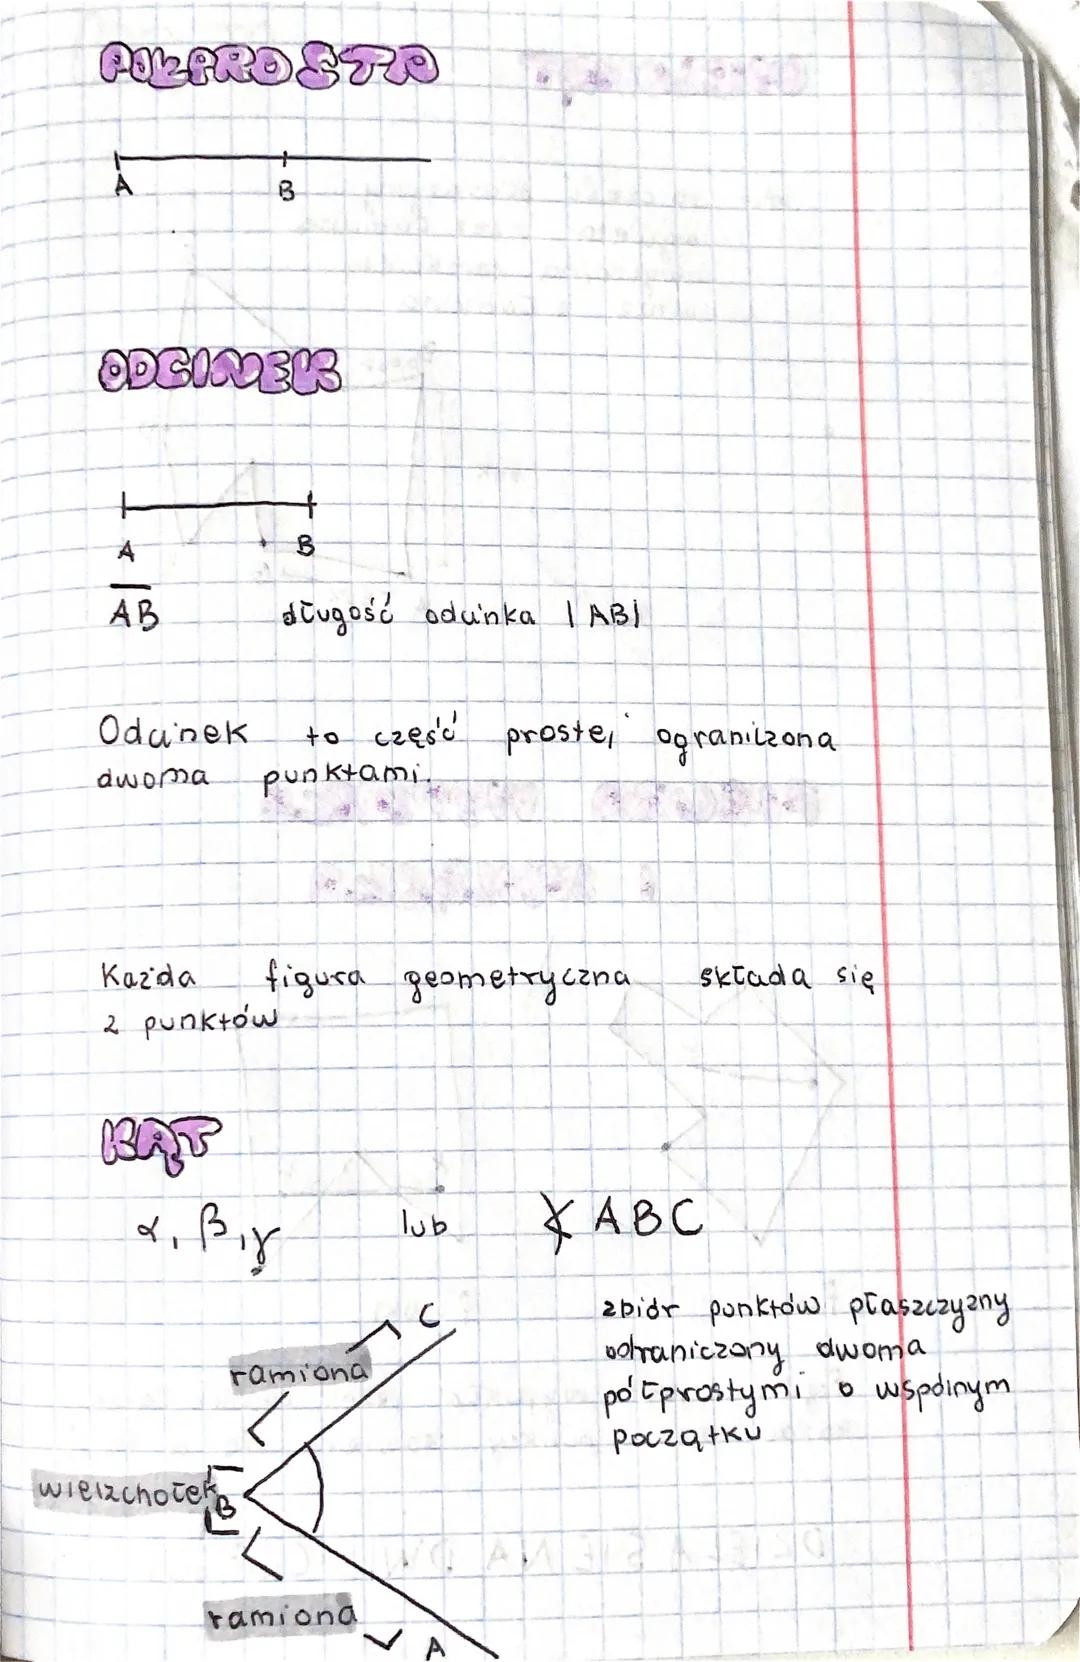 PÓŁPROSTA
A B
ODCINEK
A B
AB długość odcinka |AB|
Odcinek to część prostej ograniczona
dwoma punktami.
Każda figura geometryczna składa się
z punktów
KĄT
α, β, γ lub ∢ ABC
C
zbiór punktów płaszczyzny
ograniczony dwoma
półprostymi o wspólnym
początku
ramiona
wierzchołek B
ramiona
A